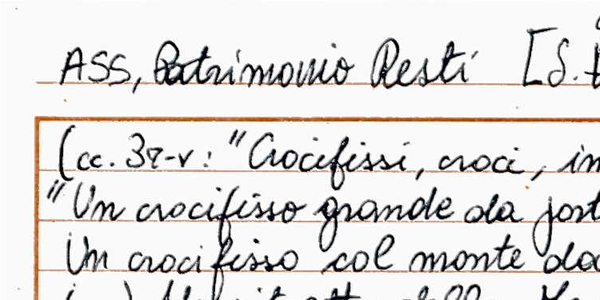 ASS, Patrimonio Resti [S.
(cc. 3r-v: "Crocifissi, croci, in
"Un crocifisso grande da
Un crocifisso col monte da